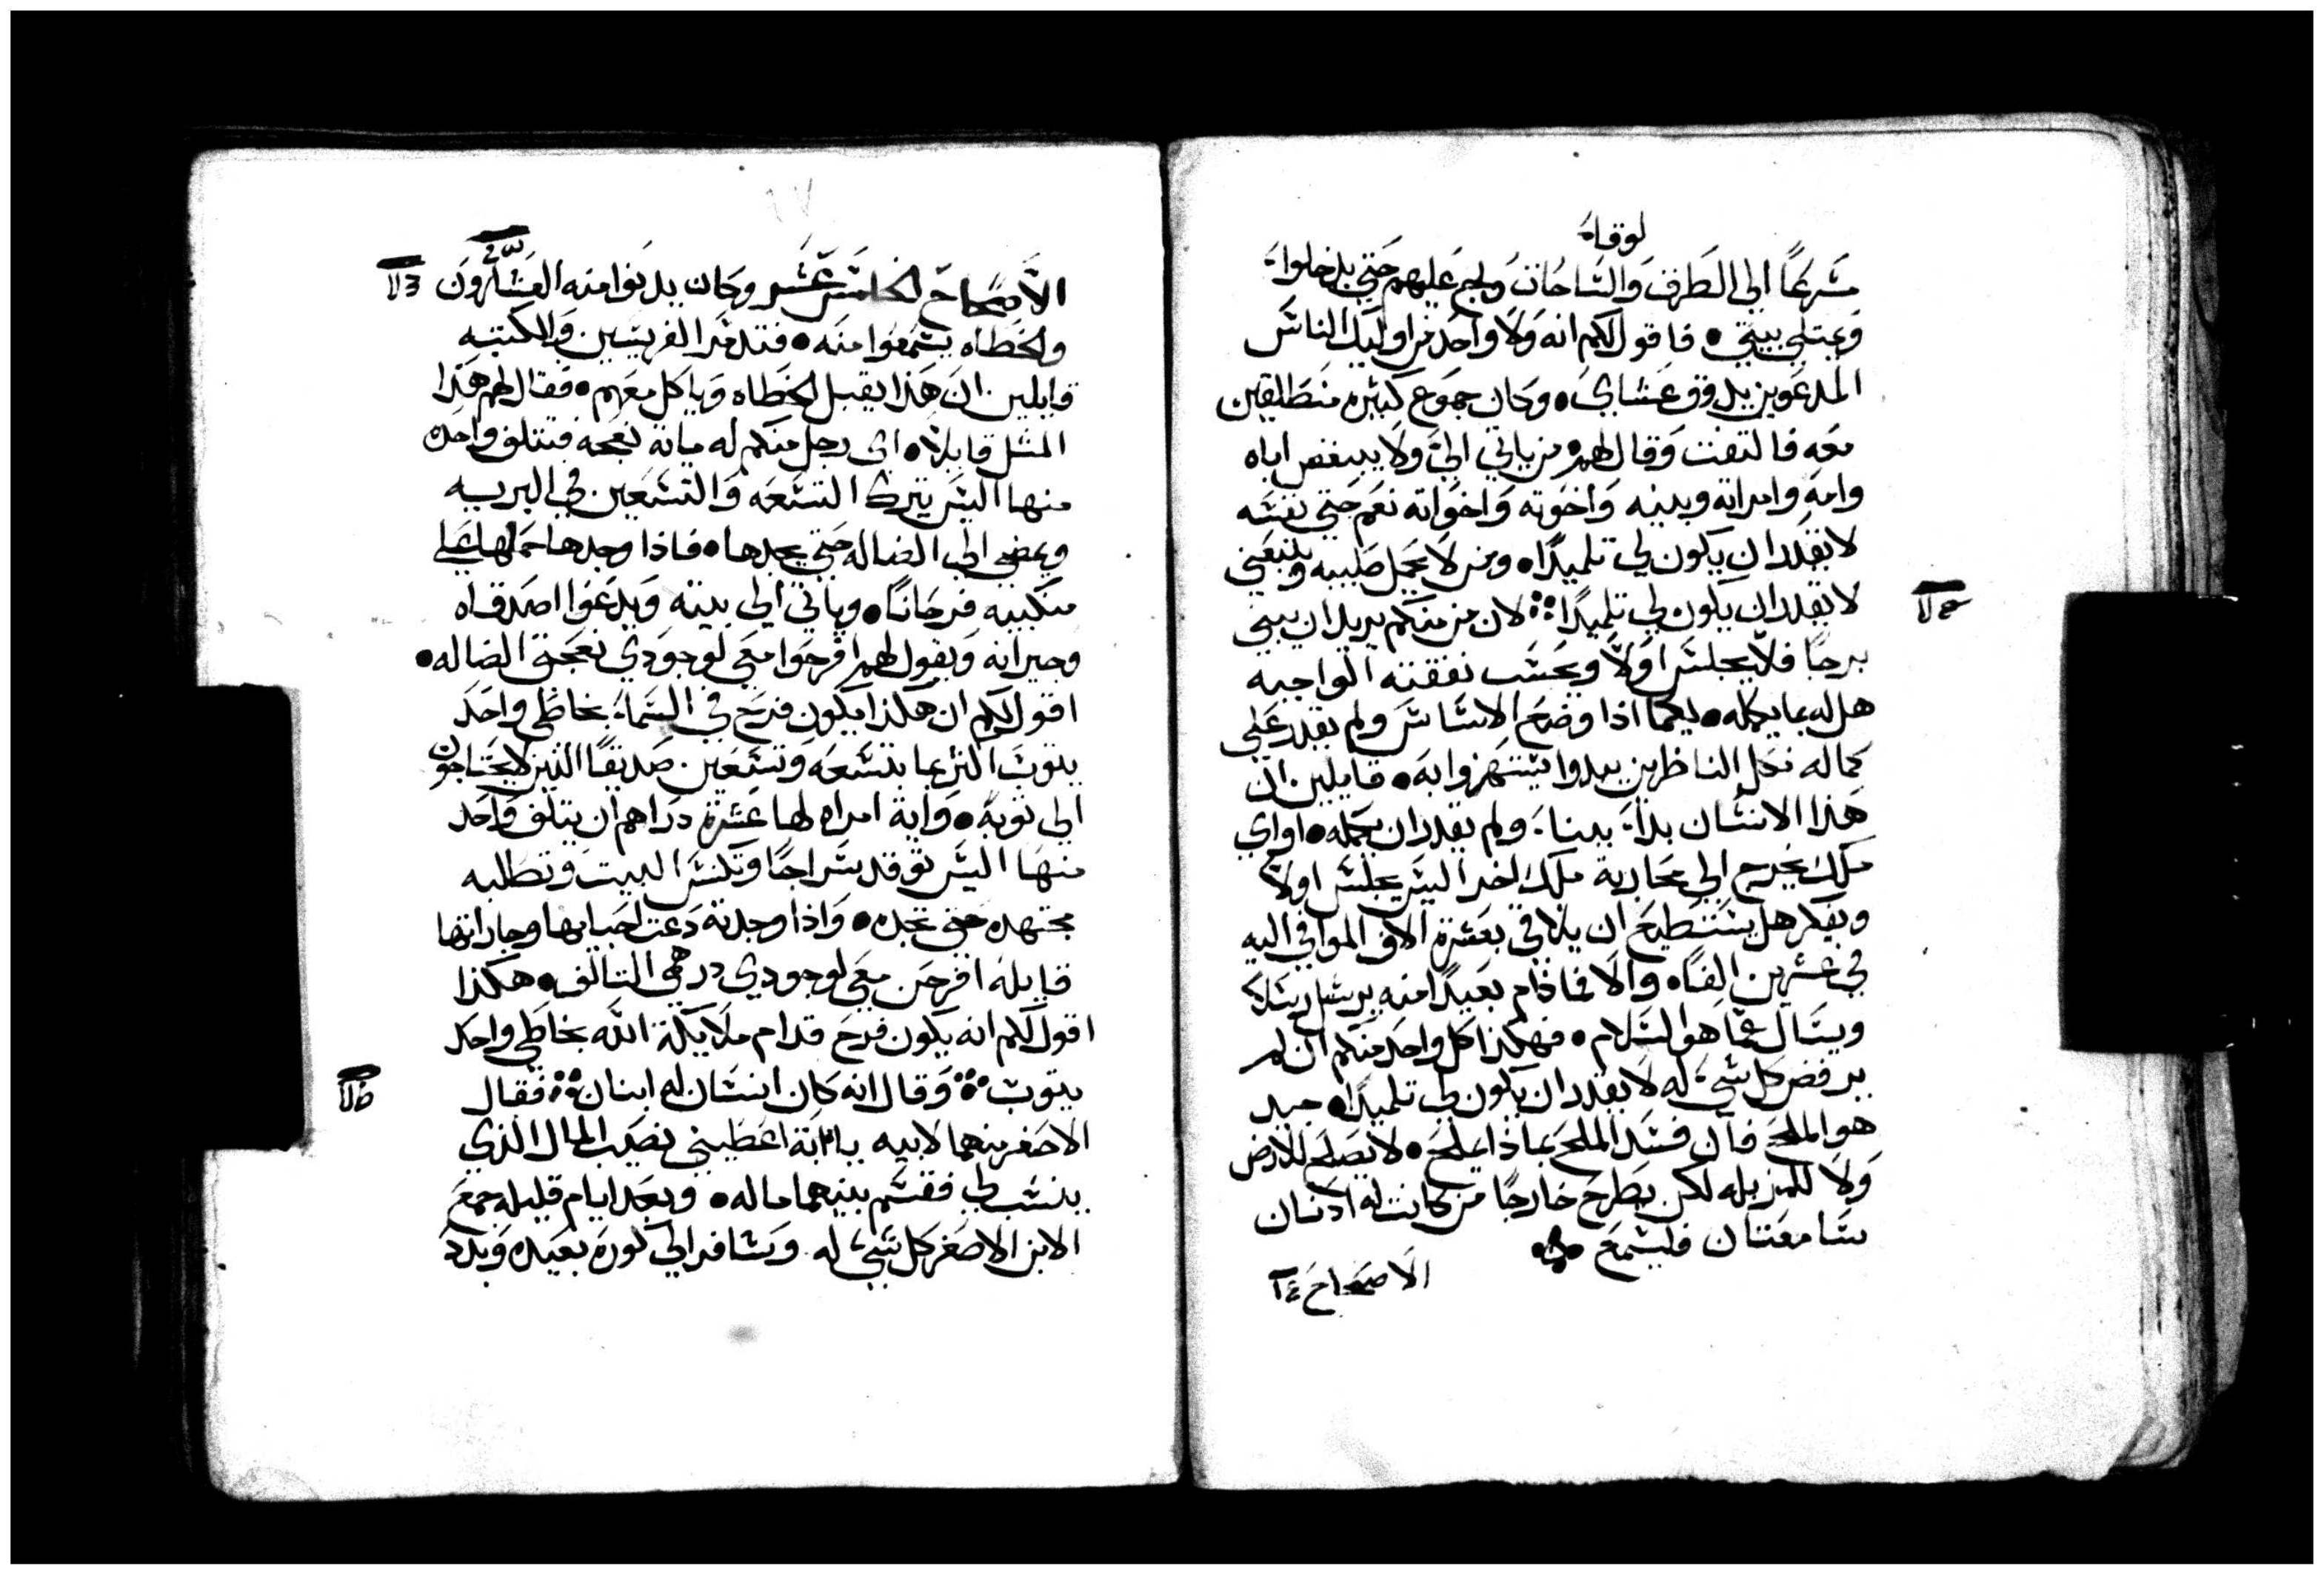 لوقا
مسرعًا الي الطرق والساحات ولج عليهم حتي يدخلوا
ويمتلي بيتي • فاقول لكم انه ولا واحد من اوليك الناس
المدعوين يدوق عشاي • وكان جموع كثيره منطلقين
معه فالتفت وقال لهم من ياتي اليَّ ولا يبغض اباه
وامه وامراته وبنيه واخوته واخواته نعم حتي نفسه
لا يقدر ان يكون لي تلميدًا • ومن لا يحمل صليبه ويتبعني
لا يقدر ان يكون لي تلميدًا ؞ لان من منكم يريد ان يبني
برجًا فلا يجلس اولًا ويحسب نفقته الواجبه
هل له بما يكمله • ليما اذا وضع الاساس ولم يقدر علي
كماله فكل الناظرين يبدوا يستهزوا به • قايلين ان
هذا الانسان بدا بنا ولم يقدر ان يكمله • او اي
ملك يخرج الي محاربة ملك اخر اليس يجلس اولًا
ويفكر هل يستطيع ان يلاقي بعشرة الاف الموافي اليه
في عشرين الفًا • والا فما دام بعيدًا منه يرسل رسلًا
ويسال عما هو السلام • فهكذا كل واحد منكم ان لم
يرفض كل شي له لا يقدر ان يكون لي تلميدًا • جيد
هو الملح فان فسد الملح بماذا يملح • لا يصلح للارض
ولا للمزبله لكن يطرح خارجًا من كانت له ادنان
سامعتان فليسمع
الاصحاح ١٤
الاصحاح الخامس عشر وكان يدنوا منه العشارون
والخطاه يسمعوا منه • فتدمر الفريسين والكتبه
قايلين ان هذا يقبل الخطاه وياكل معهم • فقال لهم هذا
المثل قايلًا • اي رجل منكم له ماية نعجه فتتلف واحده
منها اليس يترك التسعه والتسعين في البريه
ويمضي الي الضاله حتي يجدها • فاذا وجدها حملها علي
منكبيه فرحانًا • وياتي الي بيته ويدعوا اصدقاه
وجيرانه ويقول لهم افرحوا معي لوجودي نعجتي الضاله •
اقول لكم ان هكذا يكون فرح في السما بخاطي واحد
يتوب اكثر مما بتسعه وتسعين صديقًا الذين لا يحتاجون
الي توبه • واية امراه لها عشرة دراهم ان يتلف واحد
منها اليس توقد سراجًا وتكنس البيت وتطلبه
مجتهده حتي تجده • واذا وجدته دعت احبابها وجاراتها
قايله افرحن معي لوجودي درهمي التالف • هكذا
اقول لكم انه يكون فرح قدام ملايكة الله بخاطي واحد
يتوب ؞ وقال انه كان انسان له ابنان ؞ فقال
الاصغر منهما لابيه يا ابة اعطيني نصيب المال الذي
ينسب لي فقسم بينهما ماله • وبعد ايام قليله جمع
الابن الاصغر كل شي له وسافر الي كوره بعيده وبدد